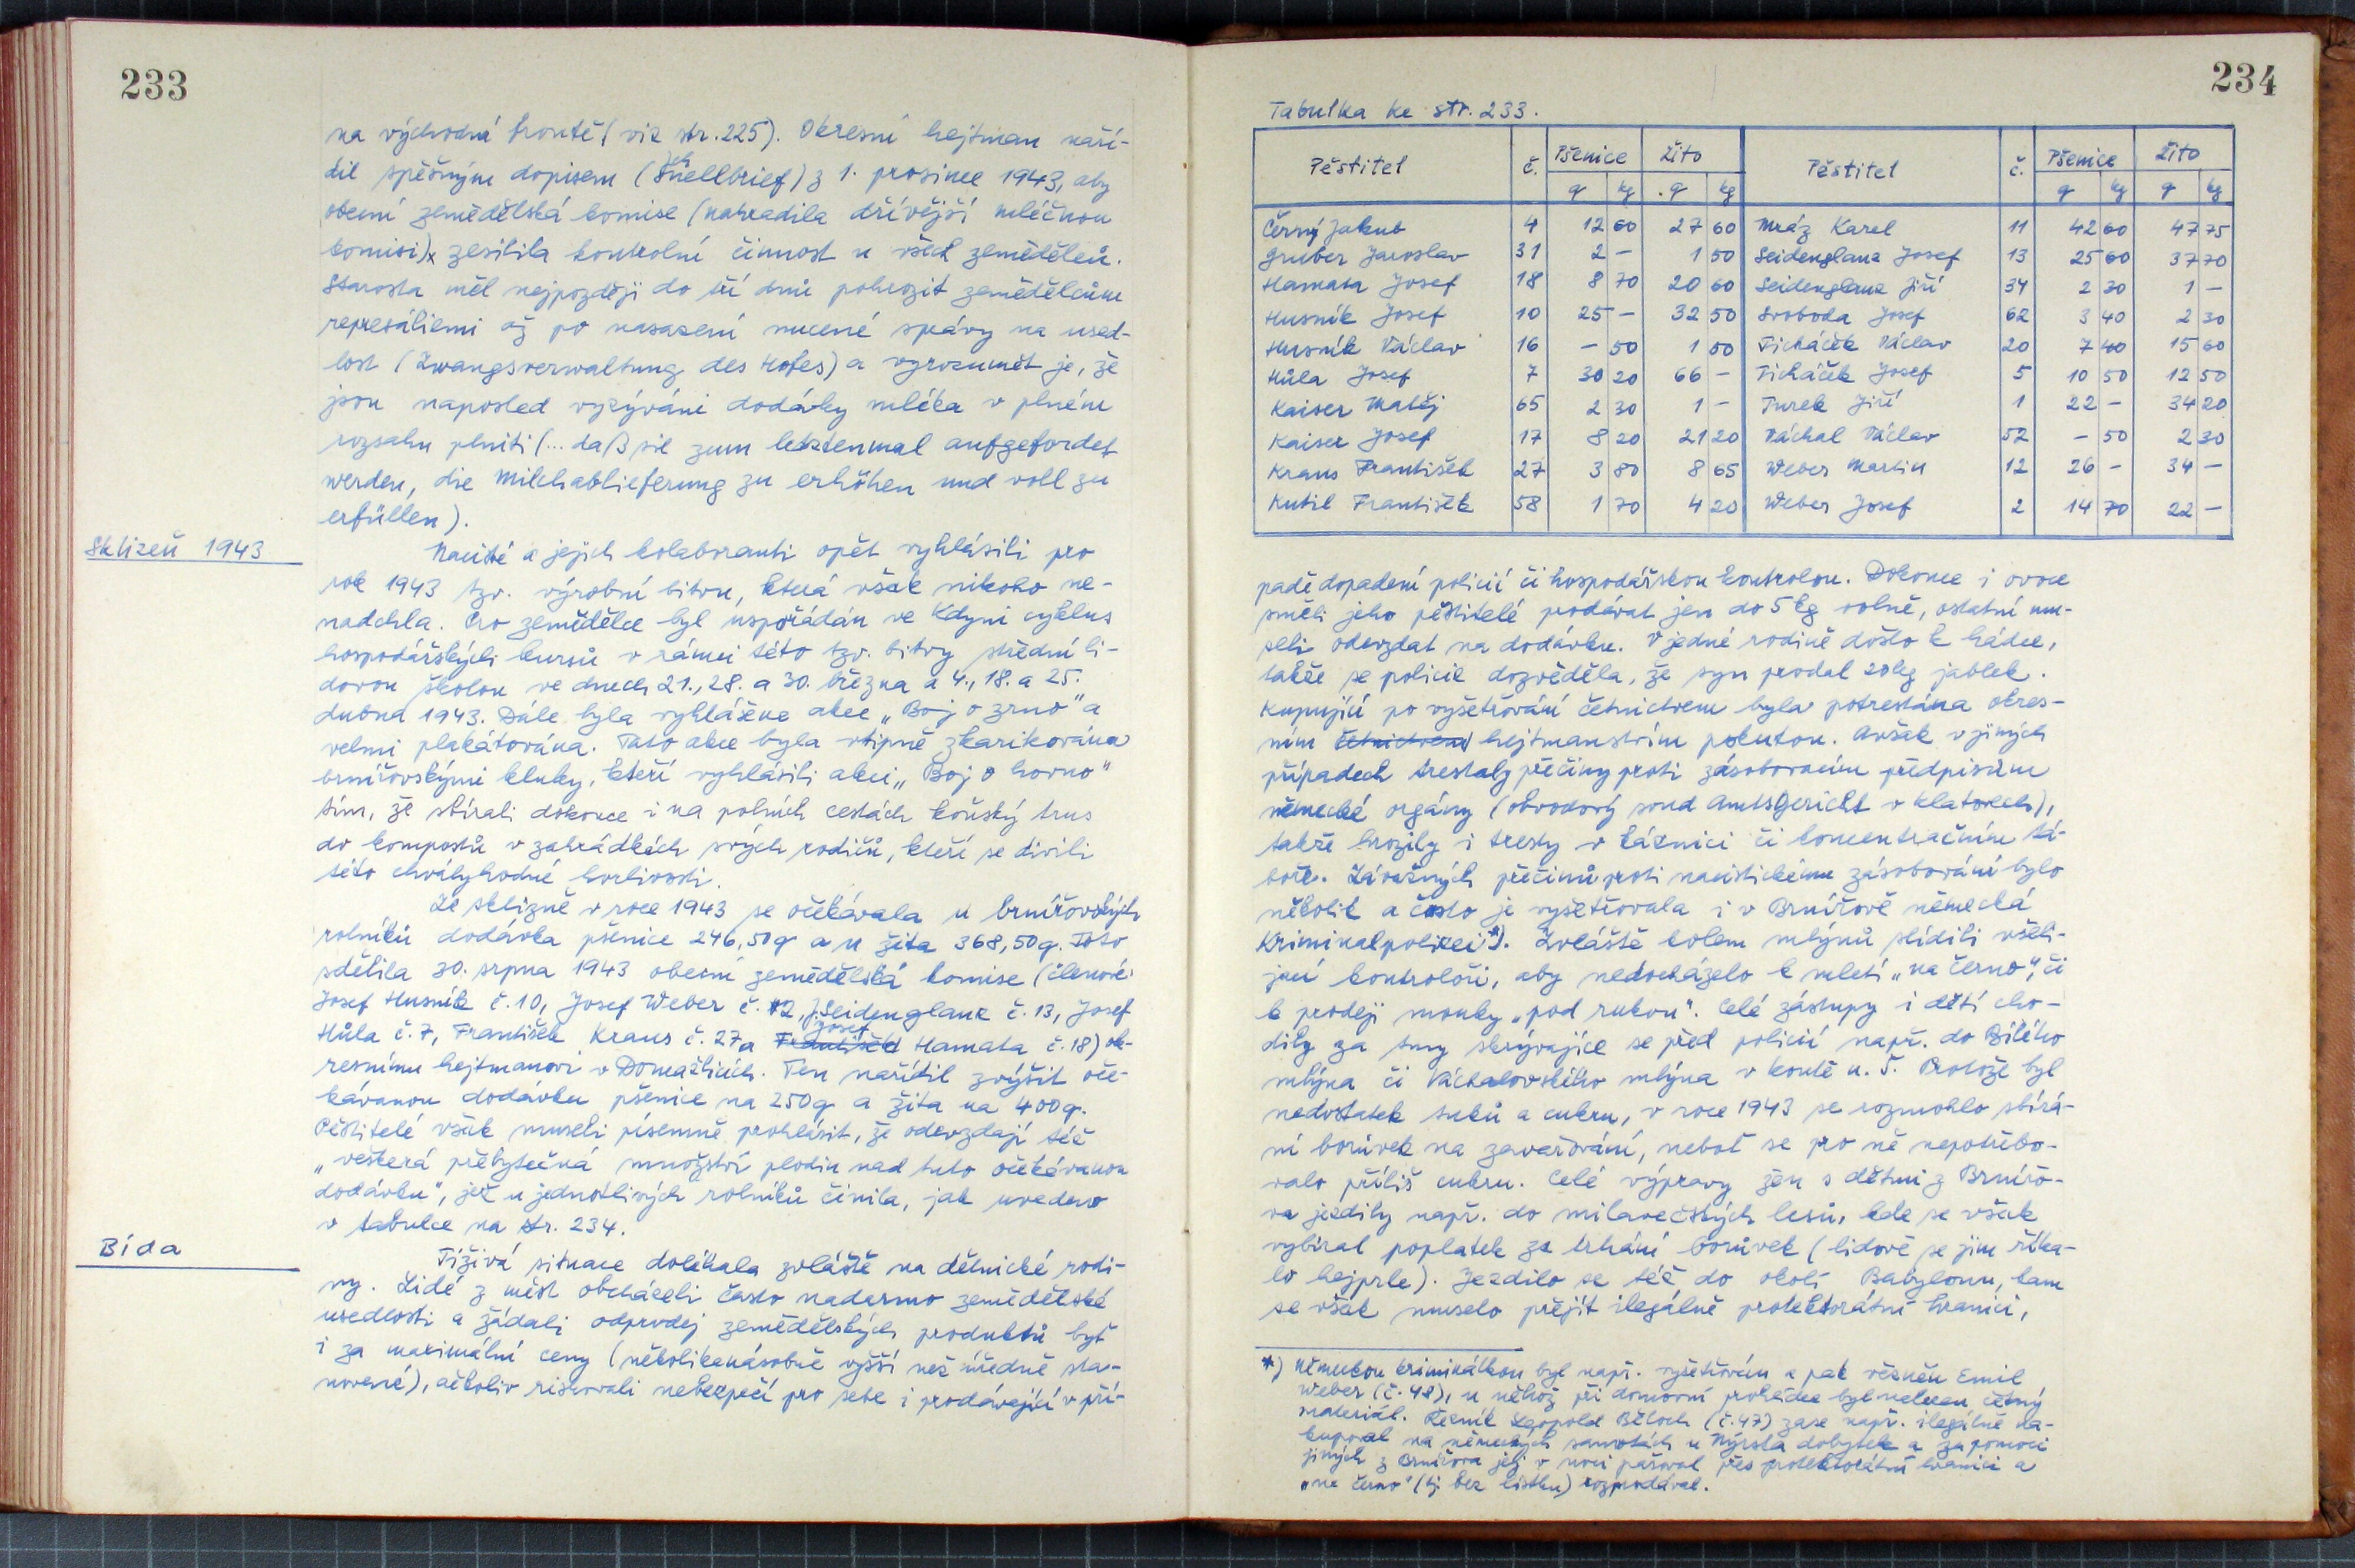 233
na východní frontě (viz str. 225). Okresní hejtman naří-
dil spěšným dopisem (Schnellbrief) z 1. prosince 1943, aby
obecní zemědělská komise (nahradila dřívější mléčnou
komisi) zesílila kontrolní činnost u všech zemědělců.
Starosta měl nejpozději do tří dnů pohrozit zemědělcům
represáliemi až po nasazení nucené správy na used-
lost (Zwangsverwaltung des Hofes) a vyrozumět je, že
jsou naposled vyzýváni dodávky mléka v plném
rozsahu plniti (... daß sie zum letztenmal aufgefordet
werden, die Milchablieferung zu erhöhen und voll zu
erfüllen).
Sklizeň 1943
Nacisté a jejich kolaboranti opět vyhlásili pro
rok 1943 tzv. výrobní bitvu, která však nikoho ne-
nadchla. Pro zemědělce byl uspořádán ve Kdyni cyklus
hospodářských kursů v rámci této tzv. bitvy střední li-
dovou školou ve dnech 21., 28. a 30. března a 4., 18. a 25.
dubna 1943. Dále byla vyhlášena akce „Boj o zrno" a
velmi plakátována. Tato akce byla vtipně zkarikována
brnířovskými kluky, kteří vyhlásili akci „Boj o hovno"
tím, že sbírali dokonce i na polních cestách koňský trus
do kompostů v zahrádkách svých rodičů, kteří se divili
této chvályhodné horlivosti.
Ze sklizně v roce 1943 se očekávala u brnířovských
rolníků dodávka pšenice 246,50q a u žita 368,50q. Toto
sdělila 30. srpna 1943 obecní zemědělská komise (členové:
Josef Husník č. 10, Josef Weber č. 2, J. Seidenglanz č. 13, Josef
Hůla č. 7, František Kraus č. 27 a František Josef Hamata č. 18) ok-
resnímu hejtmanovi v Domažlicích. Ten nařídil zvýšit oče-
kávanou dodávku pšenice na 250q a žita na 400q.
Pěstitelé však museli písemně prohlásit, že odevzdají též
„veškerá přebytečná množství plodin nad tuto očekávanou
dodávku", jež u jednotlivých rolníků činila, jak uvedeno
v tabulce na str. 234.
Bída
Tíživá situace doléhala zvláště na dělnické rodi-
ny. Lidé z měst obcházeli často nadarmo zemědělské
usedlosti a žádali odprodej zemědělských produktů byť
i za maximální ceny (několikanásobně vyšší než úředně sta-
novené), ačkoliv riskovali nebezpečí pro sebe i prodávající v pří-
234
Tabulka ke str. 233.
Pěstitel č. Pšenice Žito Pěstitel č. Pšenice Žito
q kg q kg q kg q kg
Černý Jakub 4 12 60 27 60 Mráz Karel 11 42 60 47 75
Gruber Jaroslav 31 2 – 1 50 Seidenglanz Josef 13 25 60 37 70
Hamata Josef 18 8 70 20 60 Seidenglanz Jiří 34 2 30 1 –
Husník Josef 10 25 – 32 50 Svoboda Josef 62 3 40 2 30
Husník Václav 16 – 50 1 50 Ticháček Václav 20 7 40 15 60
Hůla Josef 7 30 20 66 – Ticháček Josef 5 10 50 12 50
Kaiser Matěj 65 2 30 1 – Turek Jiří 1 22 – 34 20
Kaiser Josef 17 8 20 21 20 Váchal Václav 52 – 50 2 30
Kraus František 27 3 80 8 65 Weber Martin 12 26 – 34 –
Kutil František 58 1 70 4 20 Weber Josef 2 14 70 22 –
padě dopadení policií či hospodářskou kontrolou. Dokonce i ovoce
směli jeho pěstitelé prodávat jen do 5 kg volně, ostatní mu-
seli odevzdat na dodávku. V jedné rodině došlo k hádce,
takže se policie dozvěděla, že syn prodal 20kg jablek.
Kupující po vyšetřování četnictvem byla potrestána okres-
ním četnictvem hejtmanstvím pokutou. Avšak v jiných
případech trestaly přečiny proti zásobovacím předpisům
německé orgány (obvodový soud Amtsgericht v Klatovech),
takže hrozily i tresty v káznici či koncentračním tá-
boře. Závažných přečinů proti nacistickému zásobování bylo
několik a často je vyšetřovala i v Brnířově německá
Kriminalpolizei*). Zvláště kolem mlýnů slídili všeli-
jací kontroloři, aby nedocházelo k mletí „na černo", či
k prodeji mouky „pod rukou". Celé zástupy i dětí cho-
dily za tmy skrývajíce se před policií např. do Bílého
mlýna či Váchalovského mlýna v Koutě n. Š. Protože byl
nedostatek tuků a cukru, v roce 1943 se rozmohlo sbírá-
ní borůvek na zavařování, neboť se pro ně nepotřebo-
valo příliš cukru. Celé výpravy žen s dětmi z Brnířo-
va jezdily např. do milavečských lesů, kde se však
vybíral poplatek za trhání borůvek (lidově se jim říka-
lo hejprle). Jezdilo se též do okolí Babylonu, tam
se však muselo přejít ilegálně protektorátní hranici,
*) Německou kriminálkou byl např. vyšetřován a pak vězněn Emil
Weber (č. 48), u něhož při domovní prohlídce byl nalezen četný
materiál. Řezník Leopold Běloch (č. 47) zase např. ilegálně na-
kupoval na německých samotách u Nýrska dobytek a za pomoci
jiných z Brnířova jej v noci pašoval přes protektorátní hranici a
„na černo" (tj. bez lístku) rozprodával.